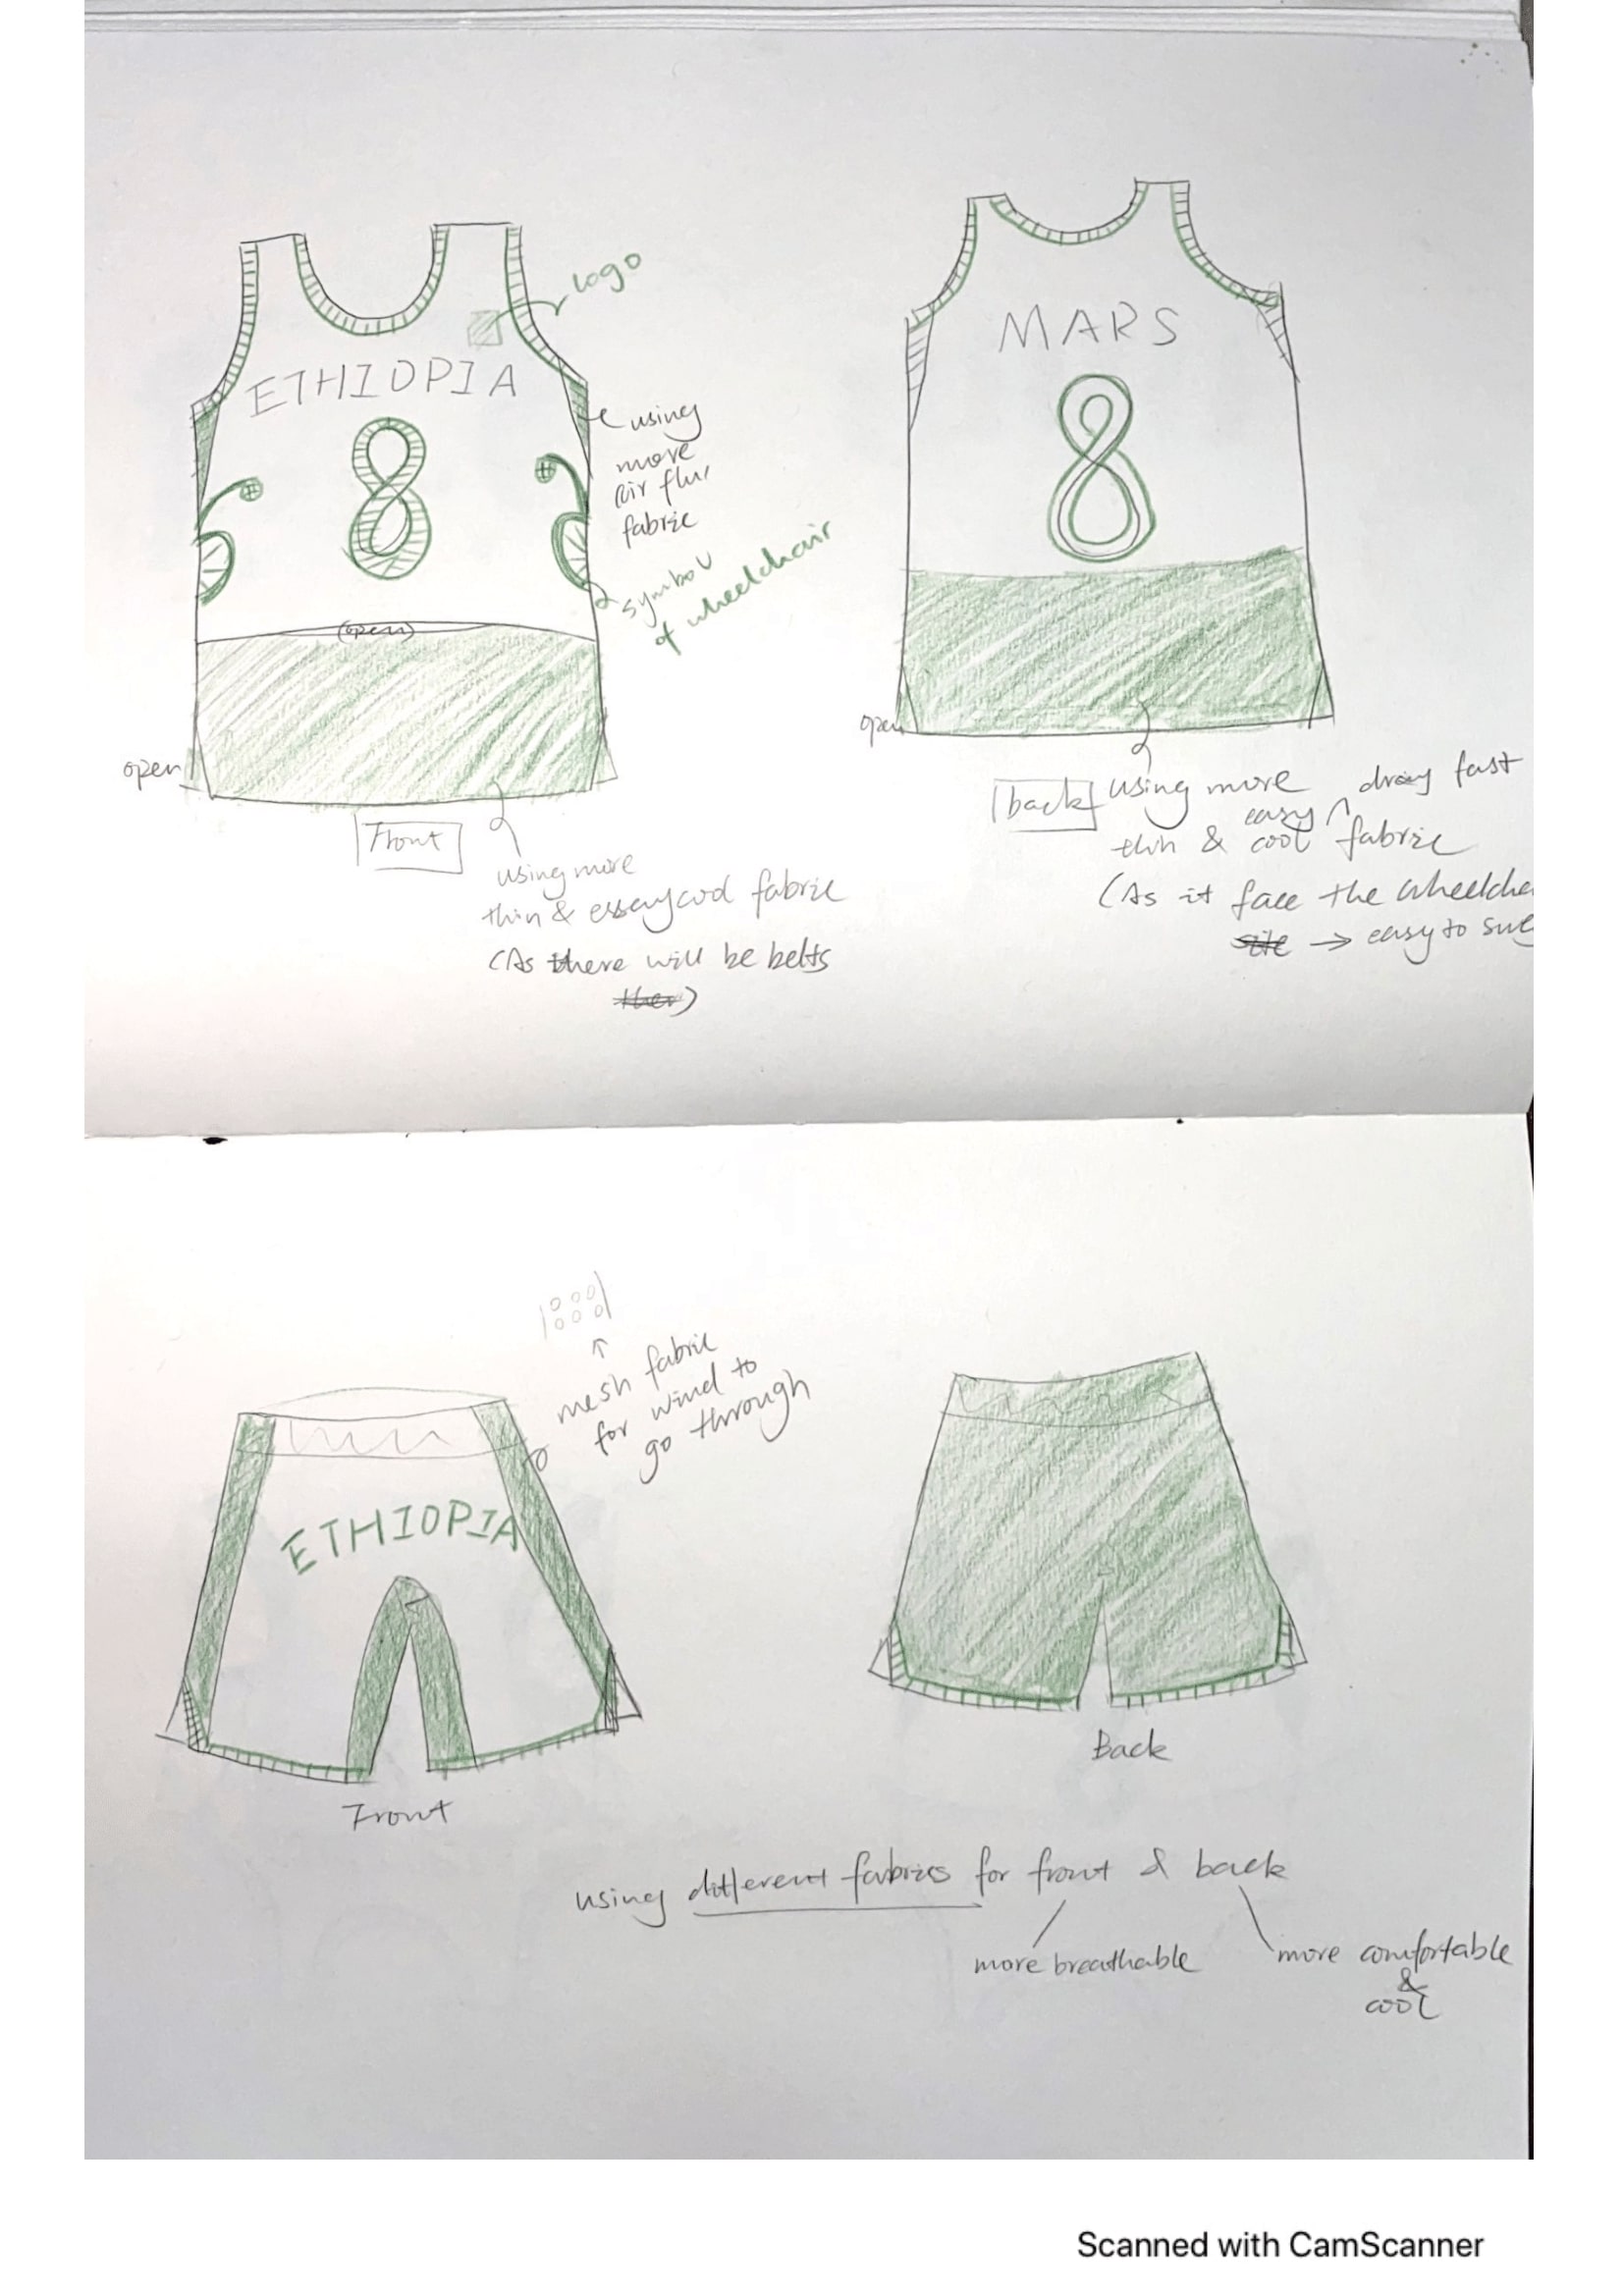 logo
ETHIOPIA
8
using
more
air
fabric
symbol
of wheelchair
(open)
open
Front
using more
thin & fabric
(As there will be belts
MARS
8
open
back
using more
easy fast
thin & cool fabric
(As it face the wheelche
→ easy to swe
mesh fabric
for wind to
go through
ETHIOPIA
Front
Back
using different fabrics for front & back
more breathable
more comfortable
&
cool
Scanned with CamScanner